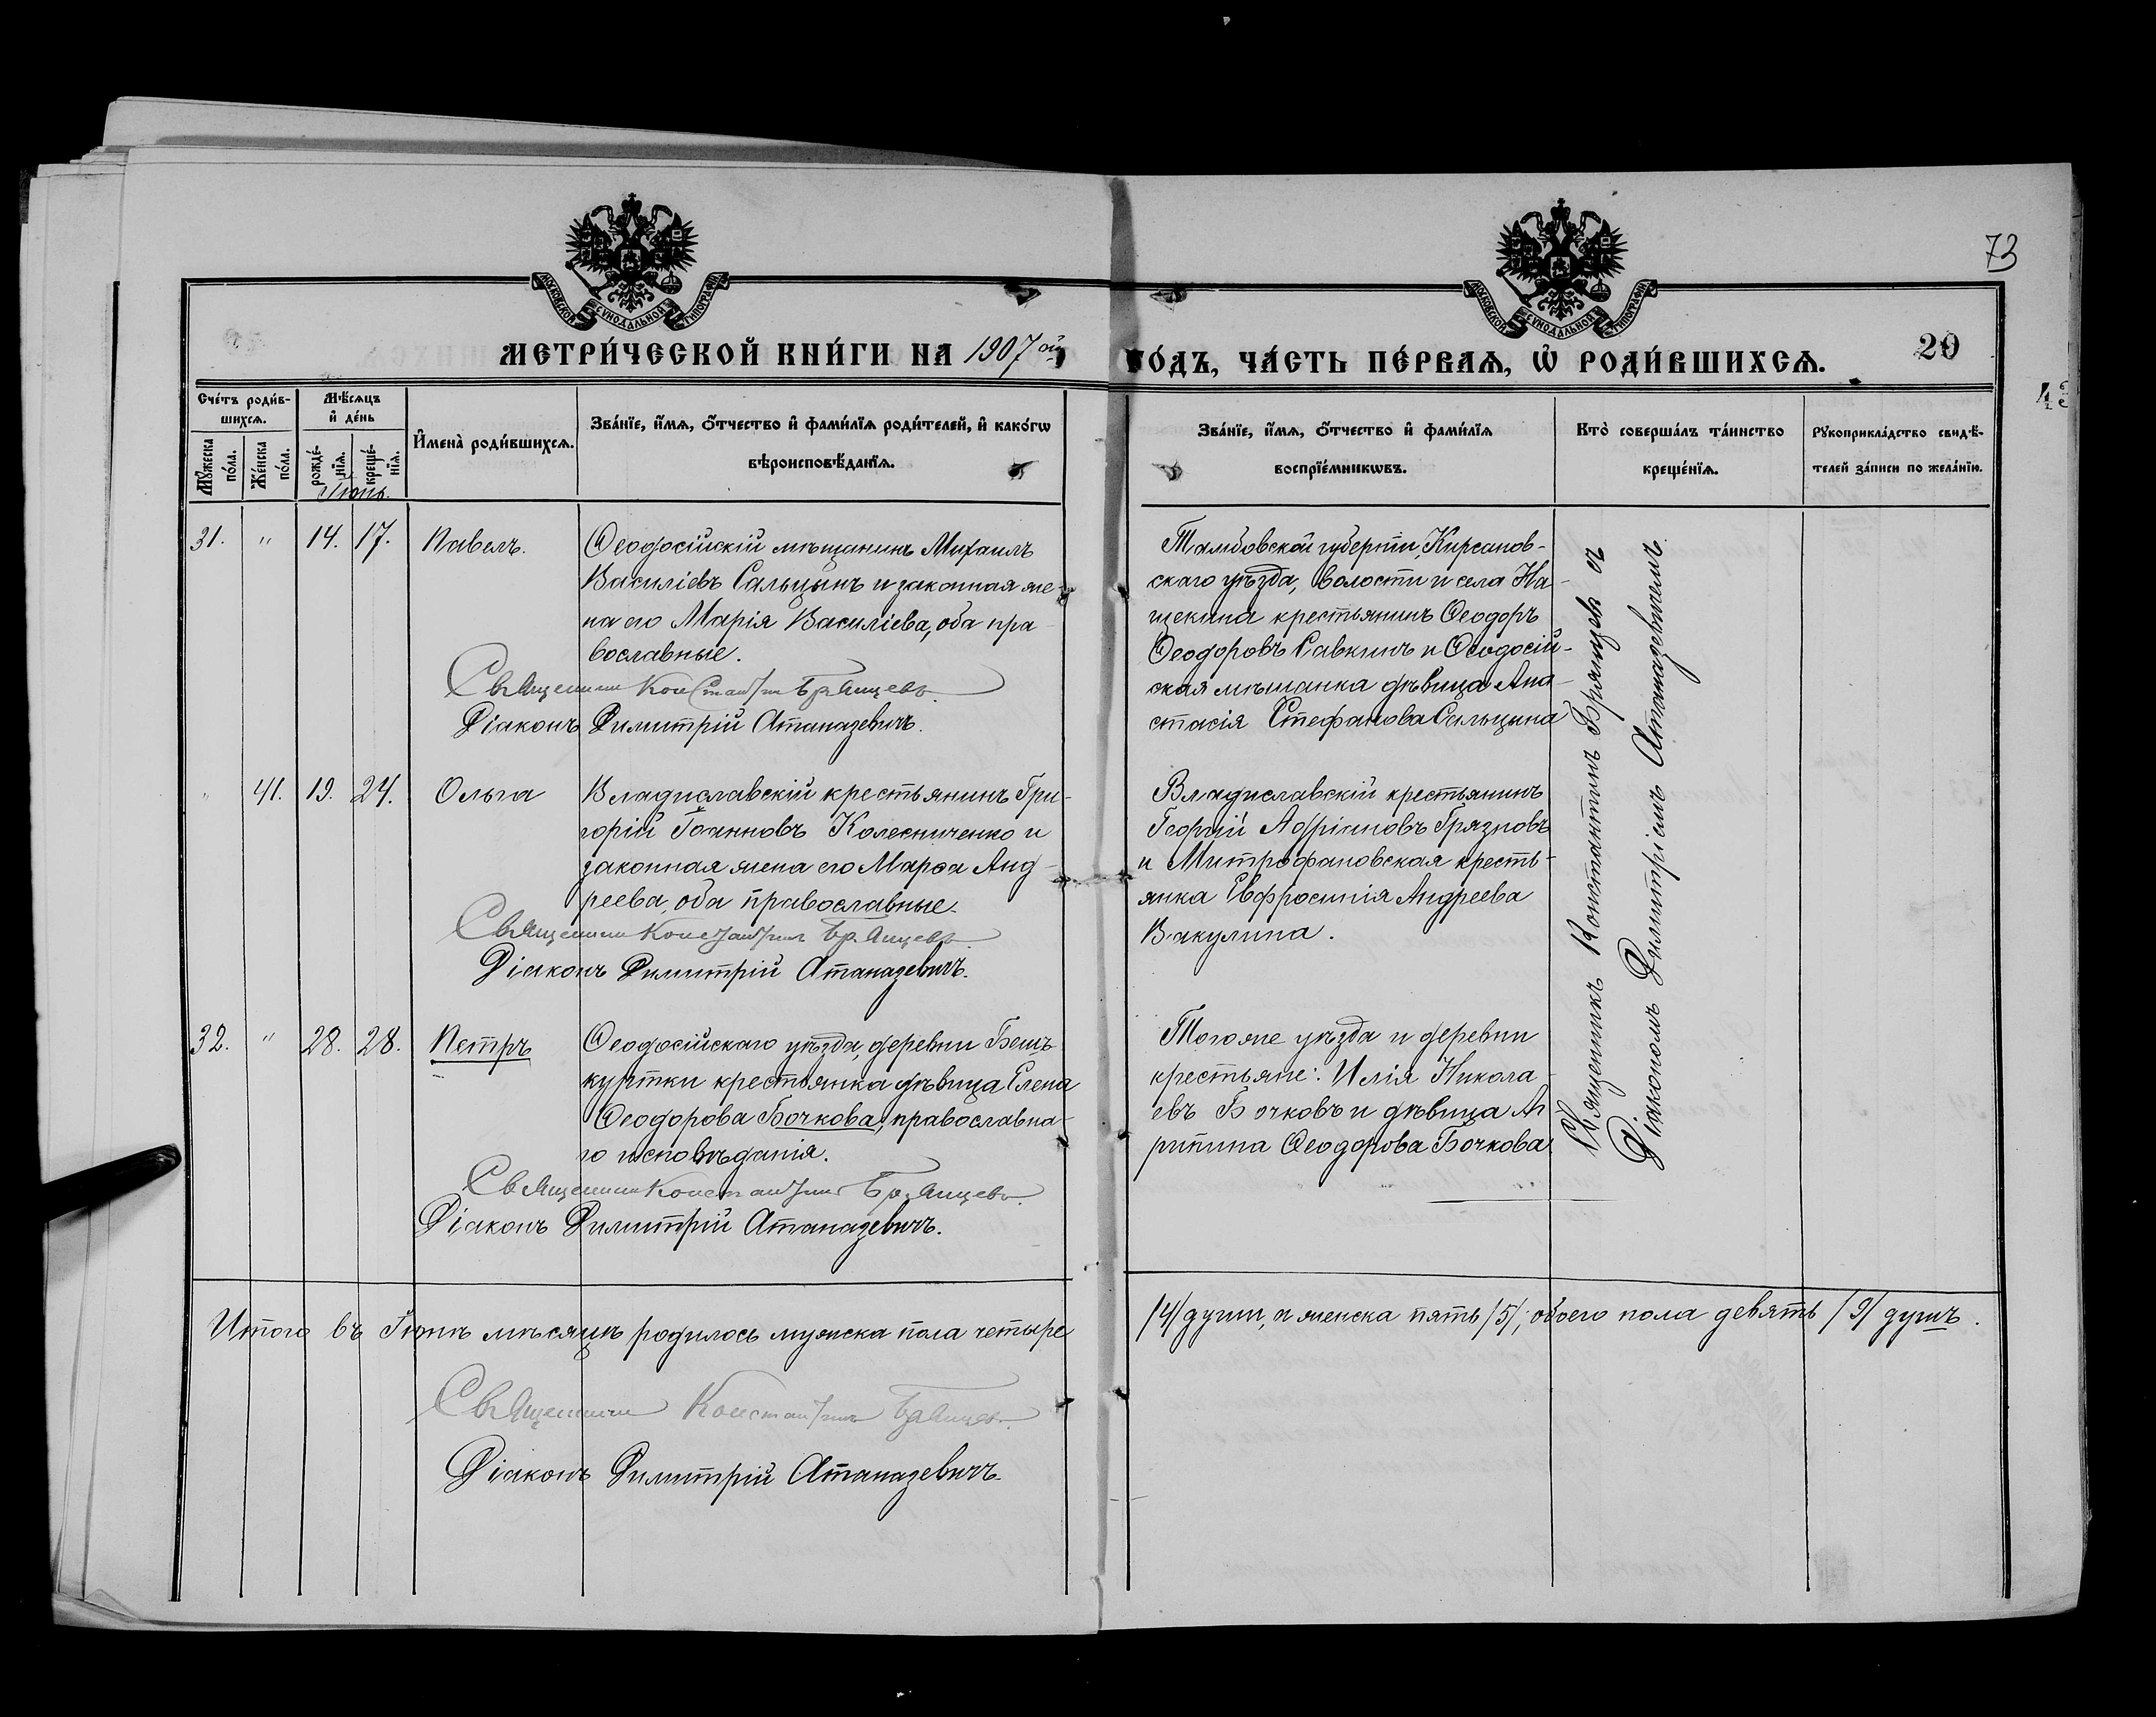 73
МОСКОВСКОЙ СѴНОДАЛЬНОЙ ТИПОГРАФІИ
МОСКОВСКОЙ СѴНОДАЛЬНОЙ ТИПОГРАФІИ
МЕТРИ́ЧЕСКОЙ КНИ́ГИ НА 1907ой
ГО́ДЪ, ЧА́СТЬ ПЕ́РВАѦ, Ѡ҆ РОДИ́ВШИХСѦ.
20
43
Сче́тъ роди́в-
шихсѧ.
Мꙋ́жеска по́ла.
Же́нска по́ла.
Мѣ́сѧцъ
и҆ де́нь
рожде́-нїѧ.
креще́-нїѧ.
И҆мена̀ роди́вшихсѧ.
Зва́нїе, и҆́мѧ, ѻ҆́тчество и҆ фами́лїѧ роди́телей, и҆ како́гѡ
вѣроисповѣ́данїѧ.
Зва́нїе, и҆́мѧ, ѻ҆́тчество и҆ фами́лїѧ
воспрїе́мникѡвъ.
Кто̀ соверша́лъ та́инство
креще́нїѧ.
Рꙋкоприкла́дство свидѣ́-
телей за́писи по жела́нїю.
Іюнь.
31. " 14. 17. Павелъ.
Ѳеодосійскій мѣщанинъ Михаилъ
Василіевъ Сальцынъ и законная же-
на его Марія Василіева, оба пра-
вославные.
Священник Константин Брянцевъ.
Діаконъ Димитрій Атаназевичъ.
Тамбовской губерніи, Кирсанов-
скаго уѣзда, волости и села На-
щекина крестьянинъ Ѳеодоръ
Ѳеодоровъ Савкинъ и Ѳеодосій-
ская мѣщанка дѣвица Ана-
стасія Стефанова Сальцына
Священникъ Константинъ Брянцевъ съ
Діакономъ Димитріемъ Атаназевичемъ.
" 41. 19. 24. Ольга
Владиславскій крестьянинъ Гри-
горій Іоанновъ Колесниченко и
законная жена его Марѳа Анд-
реева, оба православные.
Священник Константин Брянцевъ.
Діаконъ Димитрій Атаназевичъ.
Владиславскій крестьянинъ
Георгій Адріановъ Грязновъ
и Митрофановская кресть-
янка Евфросинія Андреева
Вакулина.
32. " 28. 28. Петръ
Ѳеодосійскаго уѣзда, деревни Бешъ-
куртки крестьянка дѣвица Елена
Ѳеодорова Бочкова, православна-
го исповѣданія.
Священник Константин Брянцевъ.
Діаконъ Димитрій Атаназевичъ.
Тогоже уѣзда и деревни
крестьяне: Илія Никола-
евъ Бочковъ и дѣвица Аг
рипина Ѳеодорова Бочкова.
Итого въ Іюнѣ мѣсяцѣ родилось мужска пола четыре
/4/ души, а женска пять /5/; обоего пола девять /9/ душъ.
Священник Константин Брянцевъ.
Діаконъ Димитрій Атаназевичъ.